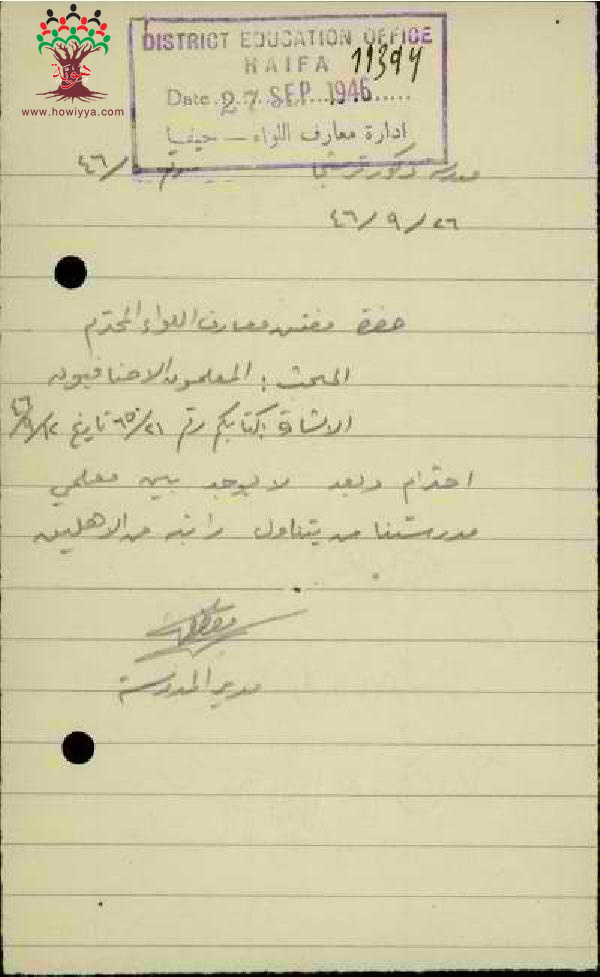 هوية
www.howiyya.com
DISTRICT EDUCATION OFFICE
HAIFA 11394
Date 27 SEP 1946
ادارة معارف اللواء — حيفا
مدرسة ذكور ترشيحا رقم /٤٦
٢٦/٩/٤٦
حضرة مفتش معارف اللواء المحترم
المبحث: المعلمون الاضافيون
الاشارة لكتابكم رقم ٢١/ تاريخ ١٢/٩/٤٦
احترام وبعد لا يوجد بين معلمي
مدرستنا من يتناول راتبه من الاهلين
مدير المدرسة